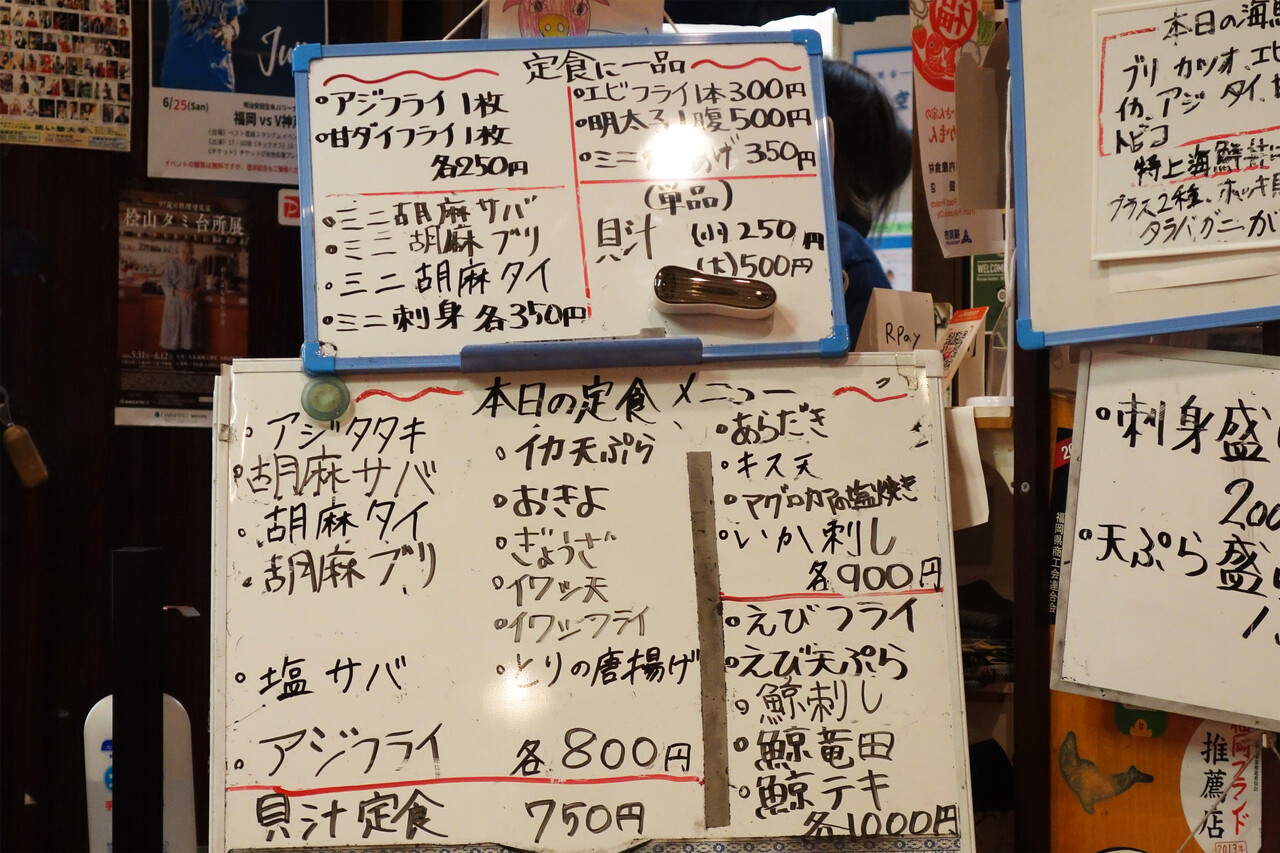 定食に一品
・アジフライ1枚
・甘ダイフライ1枚
各250円
・ミニ胡麻サバ
・ミニ胡麻ブリ
・ミニ胡麻タイ
・ミニ刺身 各350円
・エビフライ1本300円
・明太子1腹500円
・ミニ
げ 350円
(単品)
貝汁 (小)250円
(大)500円
本日の定食メニュー
・アジタタキ
・胡麻サバ
・胡麻タイ
・胡麻ブリ
・塩サバ
・アジフライ
・イカ天ぷら
・おきよ
・ぎょうざ
・イワシ天
・イワシフライ
・とりの唐揚げ
各800円
貝汁定食 750円
・あらだき
・キス天
・マグロカマの塩焼き
・いか刺し
各900円
・えびフライ
・えび天ぷら
・鯨刺し
・鯨竜田
・鯨テキ
各1000円
本日の海
ブリ カツオ、エビ
イカ、アジ タイ、
トビコ
特上海鮮
プラス2種、ホッキ
タラバガニか
・刺身盛
200
・天ぷら盛
6/25(Sun)
福岡 vs V神
桧山タミ台所展
RPay
WELCOME
福岡県商工会連合会
福岡ブランド
推薦店
2013年